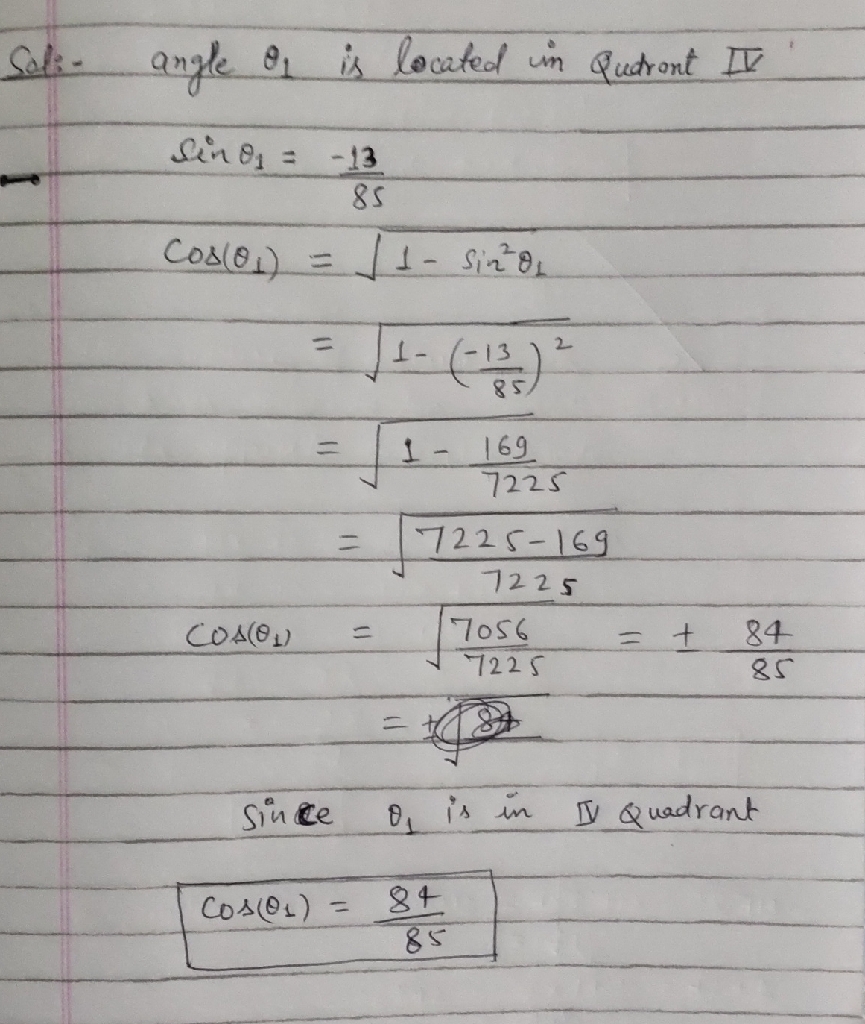 Sol:- angle θ1 is located in Qudront IV
sin θ1 = -13/85
Cos(θ1) = √(1 - sin²θ1)
= √(1 - (-13/85)²)
= √(1 - 169/7225)
= √((7225-169)/7225)
COS(θ1) = √(7056/7225) = + 84/85
Since θ1 is in IV Quadrant
Cos(θ1) = 84/85